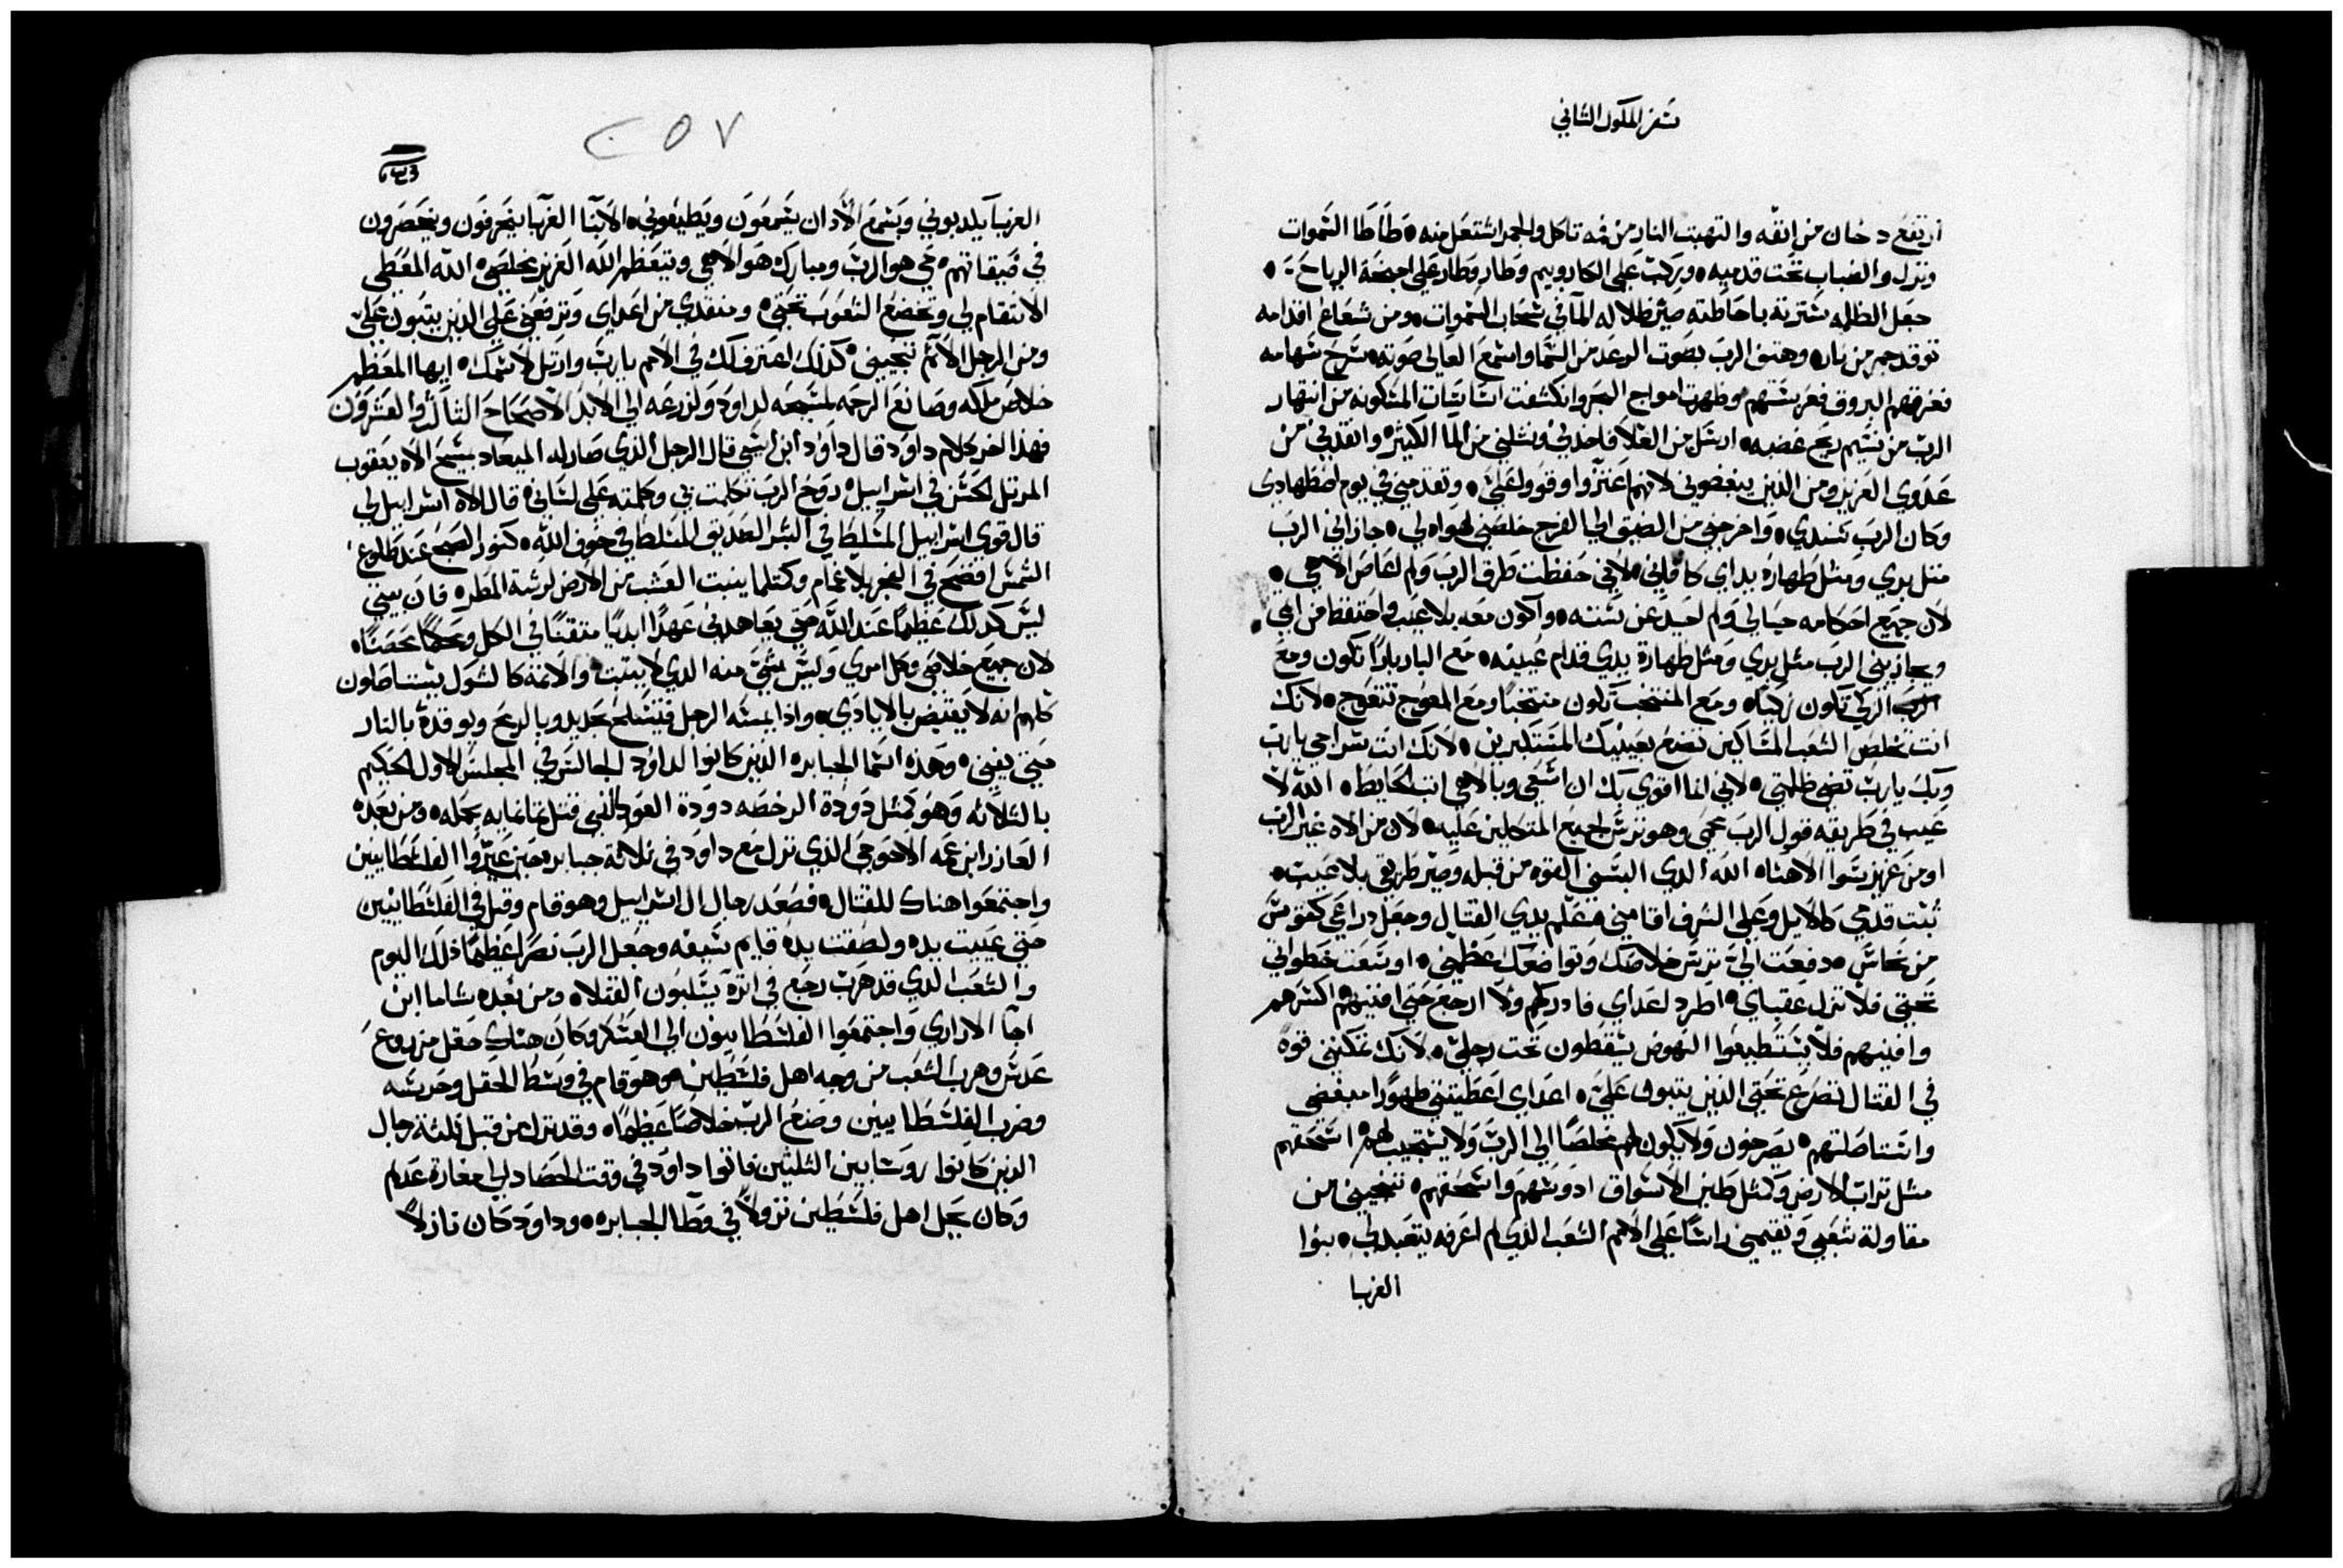 سفر الملوك الثاني
ارتفع دخان من انفه والتهبت النار من فمه تاكل والجمر اشتعل منه ٥ طاطا السموات
ونزل والضباب تحت قدميه ٥ وركب على الكاروبيم وطار وطار على اجنحة الرياح ٥
جعل الظلمه سترته باحاطته صير ظلاله المآ في سحاب السموات ٥ ومن شعاع اقدامه
توقد جمر من نار ٥ وهتف الرب بصوت الرعد من السما واسمع العالي صوته ٥ سرح سهامه
ففرقهم البروق فعربستهم وظهرت امواج البحر وانكشفت اساسات المسكونه من انتهار
الرب من نسيم ريح غضبه ٥ ارسل من العلا فاخدني ونشلني من الما الكثير ٥ وانقدني من
عدوي العزيز ومن الذين يبغضوني لانهم اعتزوا وقووا علي ٥ وتقدمني في يوم اضطهادي
وكان الرب سندي ٥ واخرجني من الضيق الى الفرج خلصني لهواه لي ٥ جازاني الرب
مثل بري ومثل طهارة يداي كافاني ٥ لاني حفظت طرق الرب ولم اعاصي الاهي ٥
لان جميع احكامه حيالي ولم احيد عن سننه ٥ واكون معه بلا عيب واحتفظ من اثمي ٥
ويجازيني الرب مثل بري ومثل طهارة يدي قدام عينيه ٥ مع البار بارًا تكون ومع
الزكي تكون زكيًا ٥ ومع المنتخب تكون منتخبًا ومع المعوج تتعوج ٥ لانك
انت تخلص الشعب المساكين تضع بعينيك المستكبرين ٥ لانك انت سراجي يارب
وبك يارب تضي ظلمتي ٥ لاني انما اقوي بك ان اسعى وبالاهي اثب الحايط ٥ الله لا
عيب في طريقه قول الرب محمي وهو ترس لجميع المتكلين عليه ٥ لان من الاه غير الرب
او من عزيز سوا الاهنا ٥ الله الدي البسني القوه من قبله وصير طريقي بلا عيب ٥
ثبت قدمي كالايل وعلى الشرف اقامني معلم يدي القتال وجعل دراعي كقوس
من نحاس ٥ دفعت الي ترس خلاصك وتواضعك عظمني ٥ اوسعت خطواتي
تحتي فلا تزل عقباي ٥ اطرد اعداي فادركهم ولا ارجع حتى افنيهم اكسرهم
وافنيهم فلا يستطيعوا النهوض يسقطون تحت رجلي ٥ لانك تمكنني قوة
في القتال تصرع تحتي الذين يتبون علي ٥ اعداي اعطيتني ظهورًا مبغضي
واستاصلتهم ٥ يصرخون ولا يكون لهم مخلصًا الى الرب ولا يستجيب لهم اسحقهم
مثل تراب الارض وكمثل طين الاسواق ادوسهم واسحقهم ٥ تنجيني من
مقاولة شعبي وتقيمني راسًا على الامم الشعب الذي لم اعرفه يتعبد لي ٥ بنوا
الغربا
٢٥٧
الغربآ يلدبوني وبسمع الادان يسمعون ويطيعوني ٥ الابنا الغربا ينجرفون وينحصرون
في ضيقاتهم ٥ حي هو الرب ومبارك هو الاهي ويتعظم الله العزيز مخلصي ٥ الله المعطي
الانتقام لي وتخضع الشعوب تحتي ٥ ومنقدي من اعداي وترفعني على الذين يتبون علي
ومن الرجل الاثم تنجيني ٥ كذلك اعترف لك في الامم يارب وارتل لاسمك ٥ ايها المعظم
خلاص ملكه وصانع الرحمه لمسيحه لداود ولزرعه الى الابد الاصحاح الثالث والعشرون
فهذا اخر كلام داود قال داود ابن اسى قال الرجل الذي صار له الميعاد بمسيح الاه يعقوب
المرتل الحسن في اسراييل ٥ روح الرب تكلمت بي وكلمته على لساني ٥ قال الاه اسراييل لي
قال قوي اسراييل المتسلط في البشر الصديق المتسلط في خوف الله ٥ كنور الصبح عند طلوع
الشمس افضح في الفجر بلا غمام وكمثلما ينبت العشب من الارض لرشة المطر ٥ فان بيتي
ليس كذلك عظيمًا عند الله حتى يعاهدني عهدًا ابديًا متقنًا في الكل ومحكمًا محصنًا ٥
لان جميع خلاصي وكل امري وليس شي منه الدي لا ينبت ٥ والاثمة كالشول يستاصلون
كلهم انه لا يقبض بالايادي ٥ واذا يمسه الرجل فيتسلح بحديد وبالرمح ويوقدة بالنار
حتى يفنى ٥ وهذه اسما الجبابره الذين كانوا لداود الجالس في المجلس الاول الحكيم
بالثلاثه وهو كمثل دودة الرخصه دودة العود التي قتل تمانمايه بحمله ٥ ومن بعده
العازر ابن عمه الاحوحي الذي نزل مع داود في ثلاثة جبابره حين عيروا الفلسطانيين
واجتمعوا هناك للقتال ٥ فصعد رجال ال اسراييل وهو قام وقتل في الفلسطانيين
حتى عييت يده ولصقت يده قايم سيفه وجعل الرب نصرًا عظيمًا ذلك اليوم
والشعب الدي قد هرب رجع في اثره يسلبون القتلا ٥ ومن بعده شاما ابن
اجا الاراري واجتمعوا الفلسطانيون الى العسكر وكان هناك حقل مزروع
عدس وهرب الشعب من وجه اهل فلسطين ٥ وهو قام في وسط الحقل وحرسه
وضرب الفلسطانيين وصنع الرب خلاصًا عظيمًا ٥ وقد نزل من قبل ثلثة رجال
الذين كانوا روسا بين الثلثين فاتوا داود في وقت الحصاد الى مغارة عدلم
وكان محل اهل فلسطين نزولاً في وطا الجبابره ٥ وداود كان نازلاً